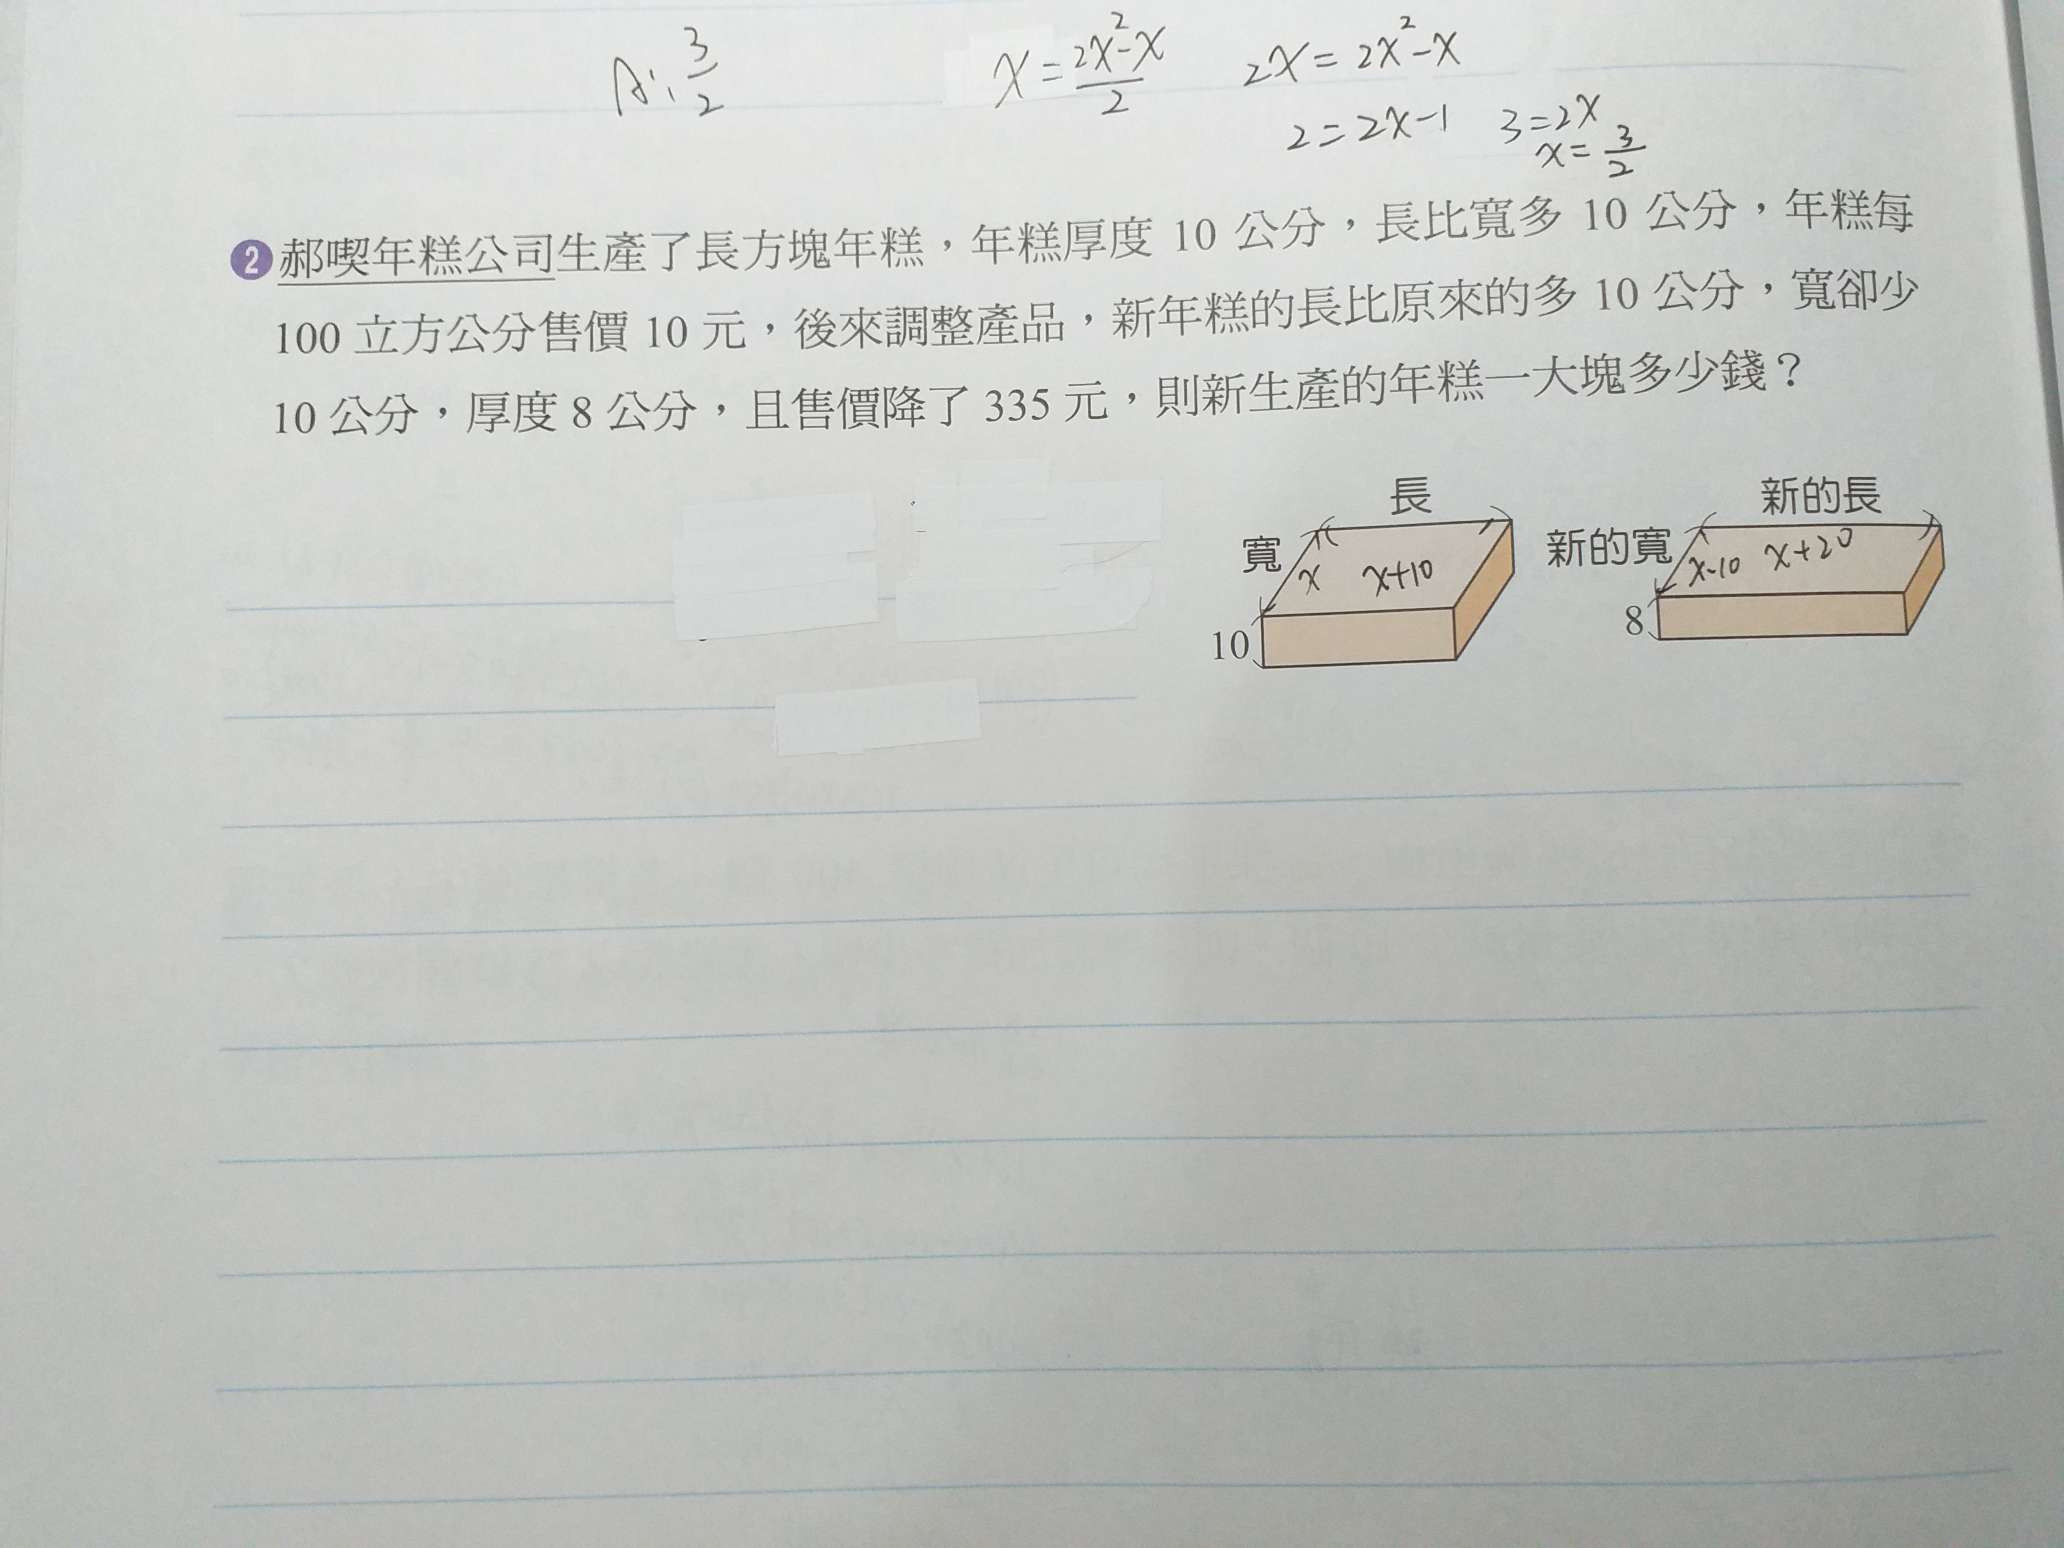 A: 3/2
x = (2x²-x)/2
2x = 2x²-x
2 = 2x-1
3 = 2x
x = 3/2
2 郝喫年糕公司生產了長方塊年糕，年糕厚度 10 公分，長比寬多 10 公分，年糕每
100 立方公分售價 10 元，後來調整產品，新年糕的長比原來的多 10 公分，寬卻少
10 公分，厚度 8 公分，且售價降了 335 元，則新生產的年糕一大塊多少錢？
長
寬
x x+10
10
新的長
新的寬
x-10 x+20
8